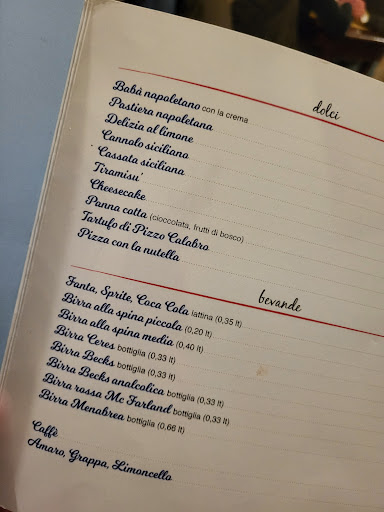 dolci
Babà napoletano con la crema
Pastiera napoletana
Delizia al limone
Cannolo siciliano
Cassata siciliana
Tiramisu'
Cheesecake
Panna cotta (cioccolata, frutti di bosco)
Tartufo di Pizzo Calabro
Pizza con la nutella
bevande
Fanta, Sprite, Coca Cola lattina (0,35 lt)
Birra alla spina piccola (0,20 lt)
Birra alla spina media (0,40 lt)
Birra Ceres bottiglia (0,33 lt)
Birra Becks bottiglia (0,33 lt)
Birra Becks analcolica bottiglia (0,33 lt)
Birra rossa Mc Farland bottiglia (0,33 lt)
Birra Menabrea bottiglia (0,66 lt)
Caffè
Amaro, Grappa, Limoncello